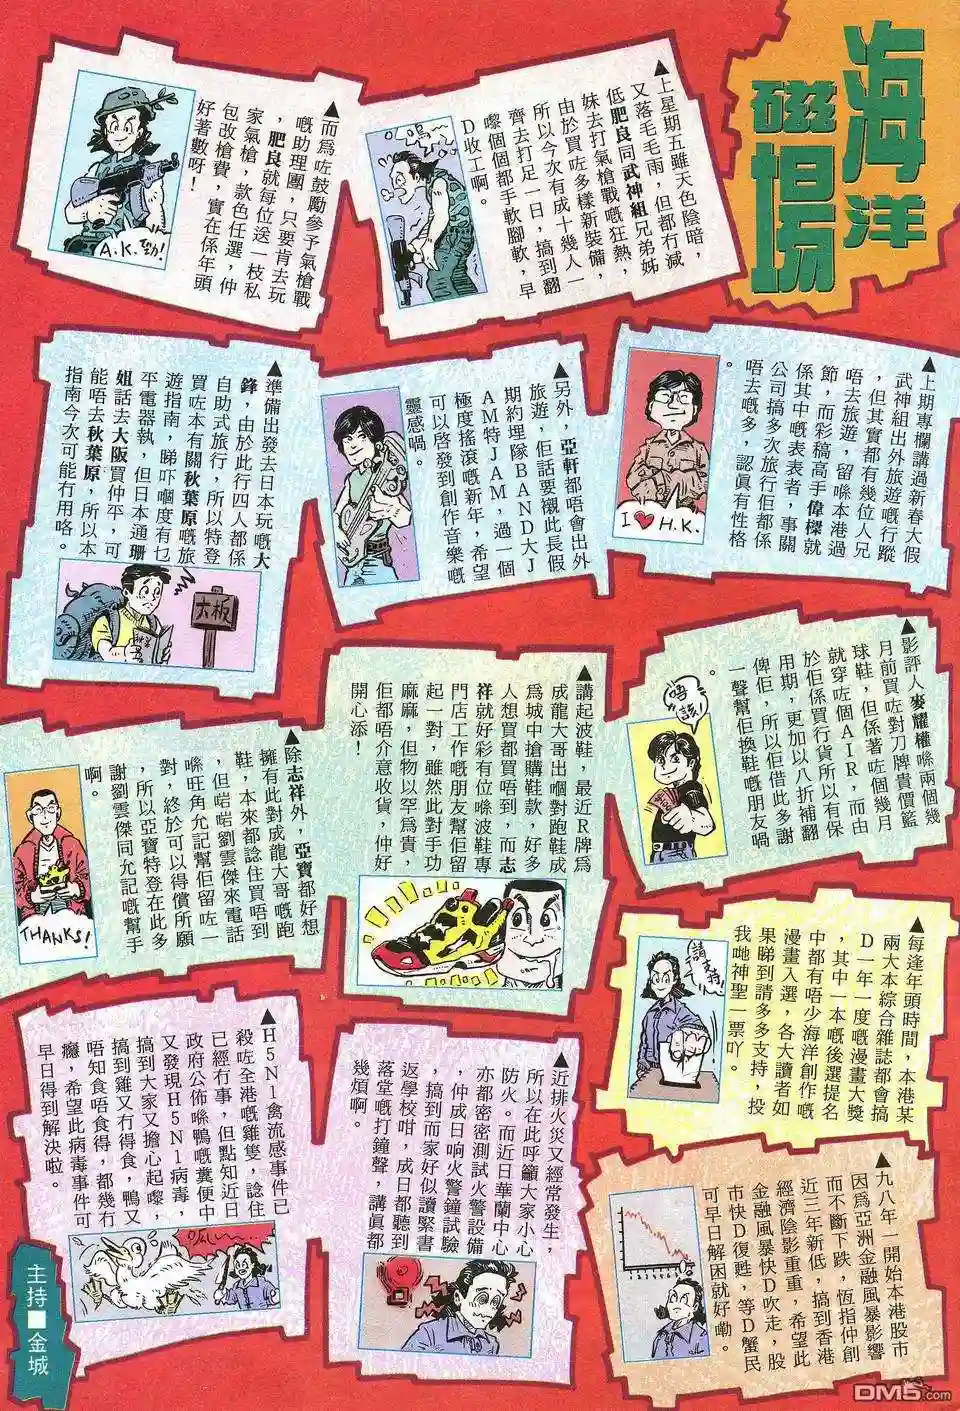 海洋
磁場
▲上星期五雖天色陰暗，
又落毛毛雨，但都冇減
低肥良同武神組兄弟姊
妹去打氣槍戰嘅狂熱，
由於買咗多樣新裝備，
所以今次有成十幾人一
齊去打足一日，搞到翻
嚟個個都手軟腳軟，早
D收工啊。
▲而為咗鼓勵參予氣槍戰
嘅助理團，只要肯去玩
，肥良就每位送一枝私
家氣槍，款色任選，仲
包改槍費，實在係年頭
好著數呀！
A.K.勁!
▲上期專欄講過新春大假
武神組出外旅遊嘅行蹤
，但其實都有幾位人兄
唔去旅遊，留喺本港過
節，而彩稿高手偉櫟就
係其中嘅表表者，事關
公司搞多次旅行佢都係
唔去嘅多，認真有性格
。
I ♥ H.K.
▲另外，亞軒都唔會出外
旅遊，佢話要襯此長假
期約埋隊BAND大J
AM特JAM，過一個
極度搖滾嘅新年，希望
可以啓發到創作音樂嘅
靈感喎。
▲準備出發去日本玩嘅大
鋒，由於此行四人都係
自助式旅行，所以特登
買咗本有關秋葉原嘅旅
遊指南，睇吓嗰度有乜
平電器執，但日本通珊
姐話去大阪買仲平，可
能唔去秋葉原，所以本
指南今次可能冇用咯。
大板
▲影評人麥耀權喺兩個幾
月前買咗對刀牌貴價籃
球鞋，但係著咗個幾月
就穿咗個AIR，而由
於佢係買行貨所以有保
用期，更加以八折補翻
俾佢，所以佢借此多謝
一聲幫佢換鞋嘅朋友喎
。
唔該!
▲講起波鞋，最近R牌為
成龍大哥出嗰對跑鞋成
為城中搶購鞋款，好多
人想買都買唔到，而志
祥就好彩有位喺波鞋專
門店工作嘅朋友幫佢留
起一對，雖然此對手功
麻麻，但物以罕為貴，
佢都唔介意收貨，仲好
開心添！
▲除志祥外，亞寶都好想
擁有此對成龍大哥嘅跑
鞋，本來都諗住買唔到
，但啱啱劉雲傑來電話
喺旺角允記幫佢留咗一
對，終於可以得償所願
，所以亞寶特登在此多
謝劉雲傑同允記嘅幫手
啊。
THANKS!
▲每逢年頭時間，本港某
兩大本綜合雜誌都會搞
D一年一度嘅漫畫大獎
，其中一本嘅後選提名
中都有唔少海洋創作嘅
漫畫入選，各大讀者如
果睇到請多多支持，投
我哋神聖一票吖。
請支持!
▲H5N1禽流感事件已
殺咗全港嘅雞隻，諗住
已經冇事，但點知近日
政府公佈喺鴨嘅糞便中
又發現H5N1病毒，
搞到大家又擔心起嚟，
搞到雞又冇得食，鴨又
唔知食唔食得，都幾冇
癮，希望此病毒事件可
早日得到解決啦。
▲近排火災又經常發生，
所以在此呼籲大家小心
防火。而近日華蘭中心
亦都密密測試火警設備
，仲成日响火警鐘試驗
，搞到而家好似讀緊書
返學校咁，成日都聽到
落堂嘅打鐘聲，講真都
幾煩啊。
▲九八年一開始本港股市
因為亞洲金融風暴影響
而不斷下跌，恆指仲創
近三年新低，搞到香港
經濟陰影重重，希望此
金融風暴快D吹走，股
市快D復甦，等D蟹民
可早日解困就好嘞。
主持■金城
DM5.com